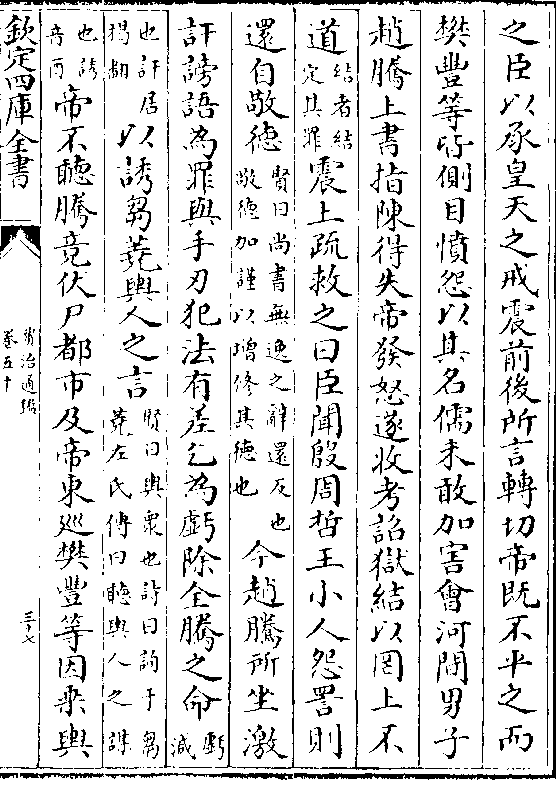 之臣以承皇天之戒震前後所言轉切帝既不平之而
樊豐等皆側目憤怨以其名儒未敢加害會河間男子
趙騰上書指陳得失帝發怒遂收考詔獄結以罔上不
道結者結定其罪震上疏救之曰臣聞殷周哲王小人怨詈則
還自敬德賢曰尚書無逸之辭還反也敬德加謹以增修其德也今趙騰所坐激
訐謗語為罪與手刃犯法有差乞為虧除全騰之命虧減
也訐居謁翻以誘芻蕘輿人之言賢曰輿衆也詩曰詢于芻蕘左氏傳曰聽輿人之謀
也誘音酉帝不聽騰竟伏尸都市及帝東巡樊豐等因乘輿
欽定四庫全書
資治通鑑
卷五十
三十七